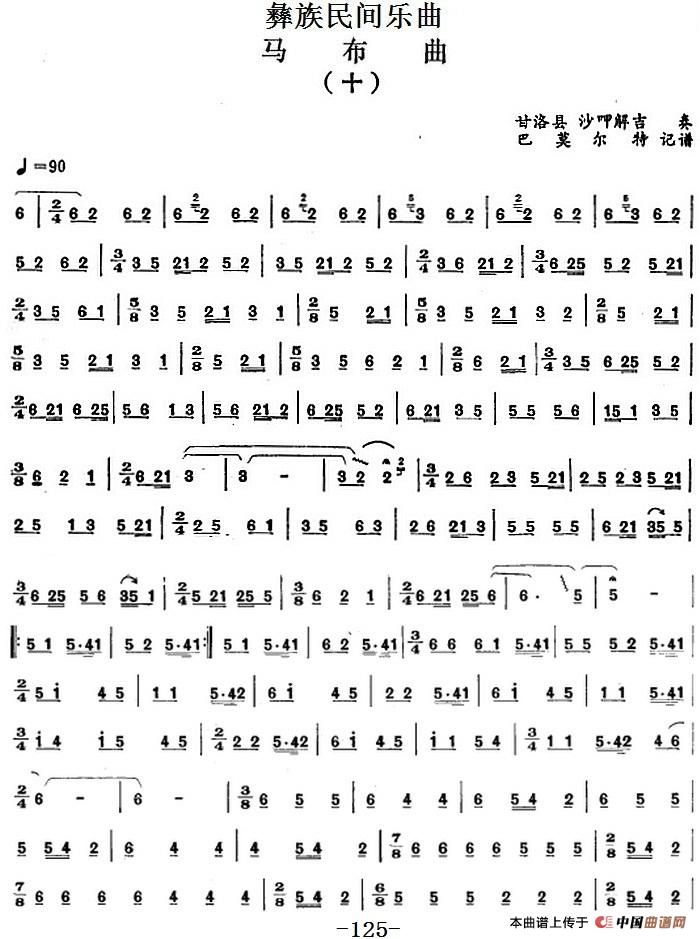 彝族民间乐曲
马布曲
(十)
甘洛县 沙呷解吉 奏
巴莫尔特 记谱
♩=90
6 | 2/4 6 2 6 2 | 6 2 6 2 | 6 2 6 2 | 6 2 6 2 | 6 3 6 2 | 6 2 6 2 | 6 3 6 2 |
5 2 6 2 | 3/4 3 5 21 2 5 2 | 3 5 21 2 5 2 | 2/4 3 6 21 2 | 3/4 6 25 5 2 5 21 |
2/4 3 5 6 1 | 5/8 3 5 21 3 1 | 2/8 5 21 | 5/8 3 5 21 3 2 | 2/8 5 21 |
5/8 3 5 21 3 1 | 2/8 5 21 | 5/8 3 5 21 3 1 | 2/8 6 21 | 3/4 3 5 6 25 5 2 |
2/4 6 21 6 25 | 5 6 1 3 | 5 6 21 2 | 6 25 5 2 | 6 21 3 5 | 5 2 5 6 | 15 1 3 5 |
3/8 6 2 1 | 2/4 6 21 3 | 3 - | 3 2 2 | 3/4 2 6 2 3 5 21 | 2 5 2 3 5 21 |
2 5 1 3 5 21 | 2/4 2 5 6 1 | 3 5 5 2 | 2 6 21 3 | 5 5 5 5 | 6 21 35 5 |
3/4 6 25 5 6 35 1 | 2/4 5 21 25 | 3/8 6 2 1 | 2/4 6 21 25 6 | 6 · 5 | 5 - |
|: 5 1 5·41 | 5 2 5·41 :| 5 1 5·41 | 6 2 5·41 | 3/4 6 6 6 1 5·41 |
2/4 5 i 4 5 | 1 1 5·42 | 6 i 4 5 | 2 2 5·41 | 6 i 2 2 5·41 |
3/4 i 4 i 5 4 5 | 2/4 2 2 5·42 | 6 i 5 4 | 3/4 1 1 5·42 4 6 |
2/4 6 - | 6 - | 3/8 6 5 5 | 6 6 5 | 6 5 4 2 | 6 5 5 |
5 5 4 2 | 6 4 4 | 4 5 4 2 | 7/8 6 6 6 6 5 5 5 | 2/8 5 4 2 |
7/8 6 6 6 6 6 4 4 | 2/8 5 4 2 | 6/8 5 5 5 5 5 5 | 2/8 5 4 2 |
-125-
本曲谱上传于 中国曲谱网